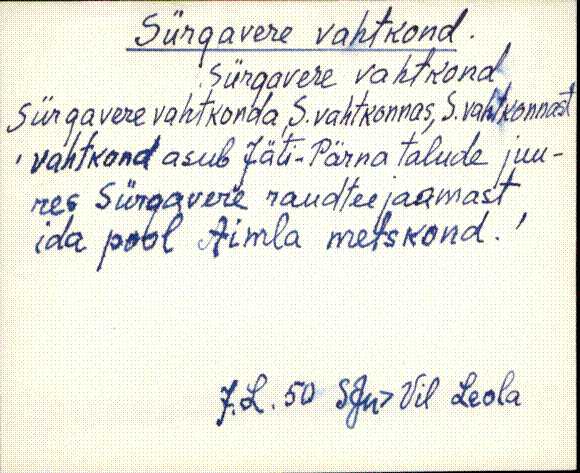 Sürgavere vahtkond.
Sürgavere vahtkond
Sürgavere vahtkonda, S. vahtkonnas, S. vahtkonnast
'vahtkond asub Jäti-Pärna talude juu-
res Sürgavere raudteejaamast
ida pool Aimla metskond.'
J.L. 50 SJn > Vil Leola